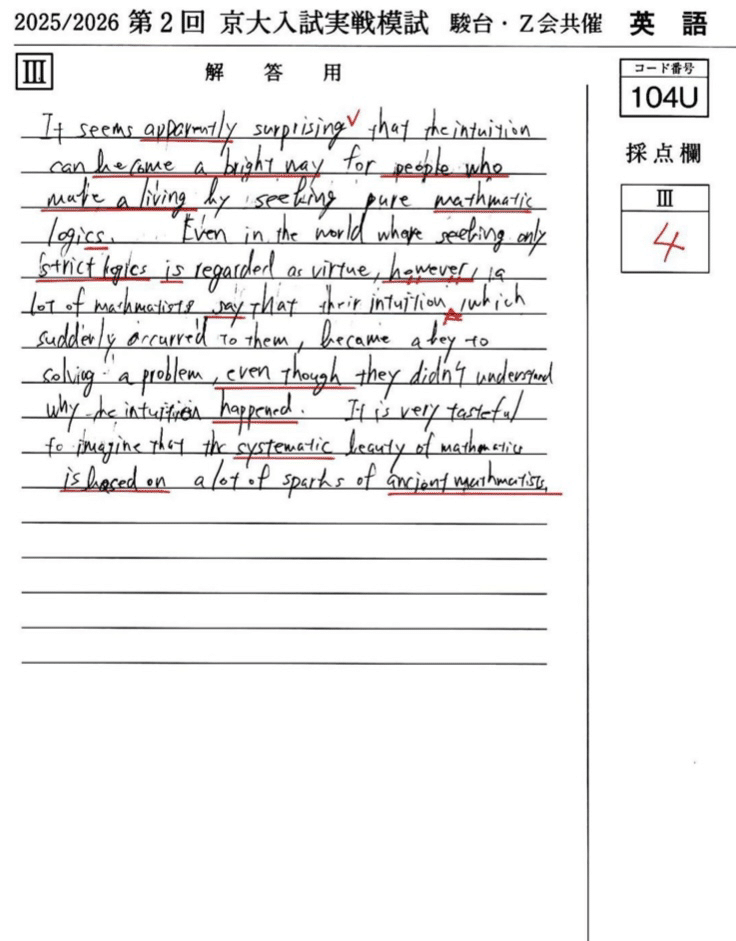 2025/2026 第2回 京大入試実戦模試 駿台・Z会共催 英語
III
解答用
コード番号
104U
採点欄
III
4
It seems apparently surprising that the intuition
can become a bright way for people who
make a living by seeking pure mathmatic
logics. Even in the world where seeking only
strict logics is regarded as virtue, however, a
lot of mathmatists say that their intuition, which
suddenly occurred to them, became a key to
solving a problem, even though they didn't understand
why the intuition happened. It is very tasteful
to imagine that the systematic beauty of mathematics
is based on a lot of sparks of ancient mathmatists.